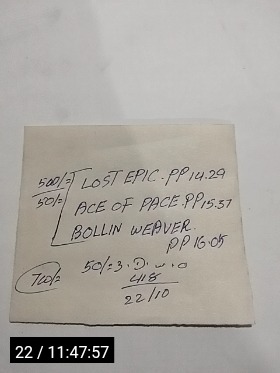 500/= LOST EPIC. PP 14.29
50/= ACE OF PACE PP 15.37
BOLLIN WEAVER.
PP 16.05
50/= 3. D. w. o
418
22/10
22 / 11:47:57